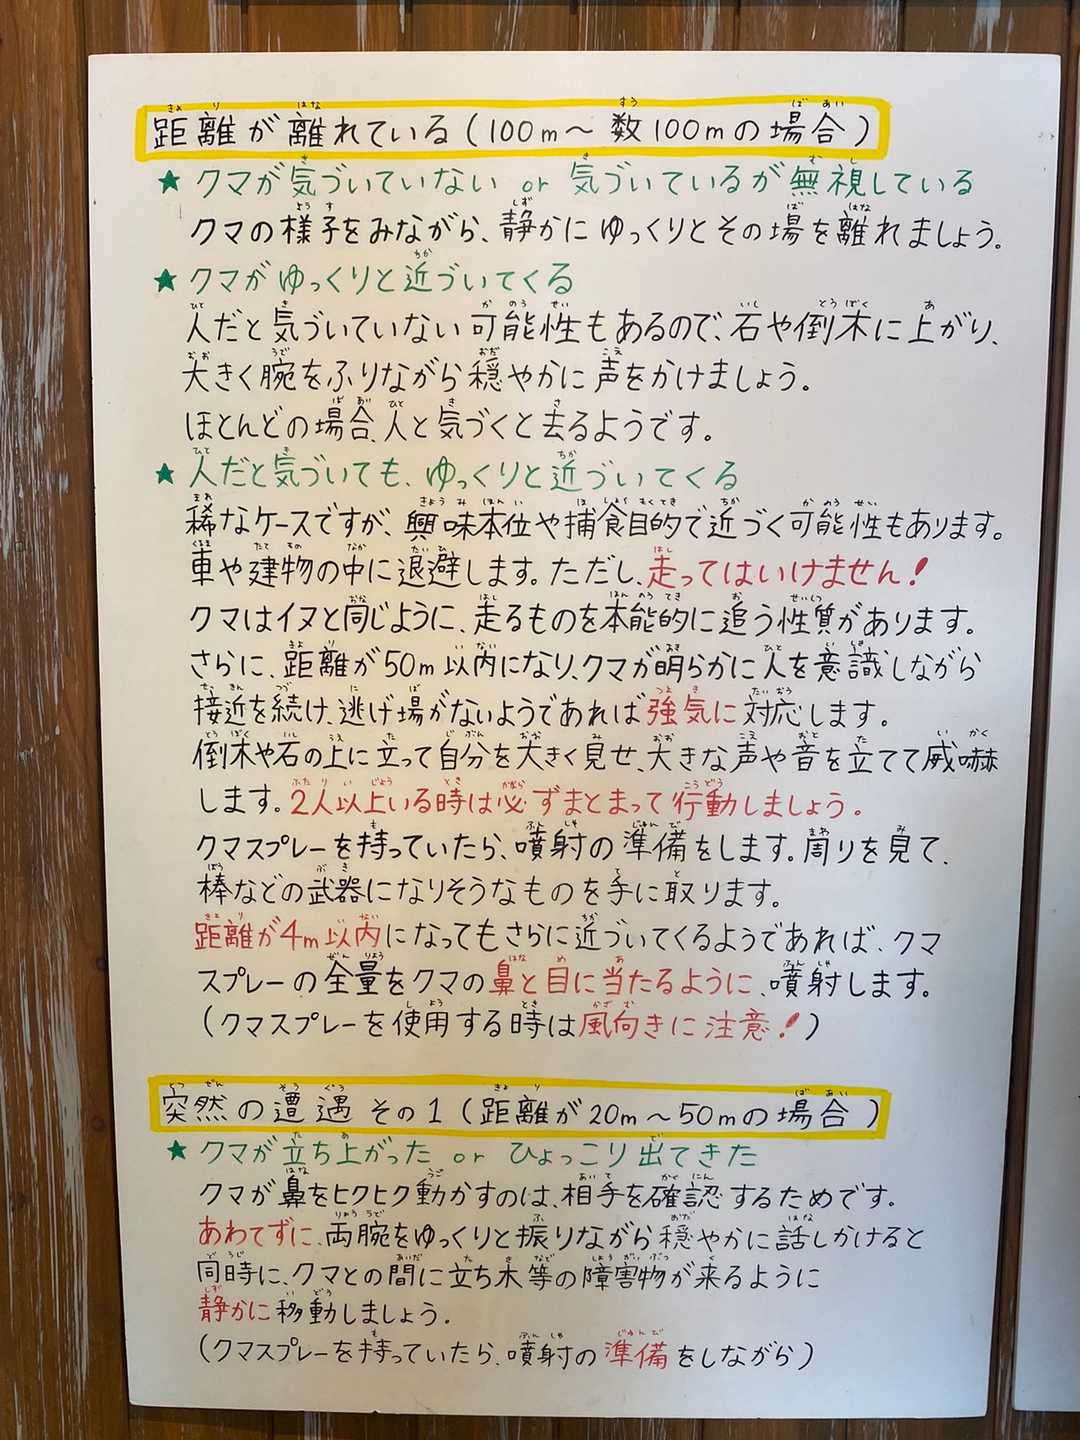 距離が離れている(100m〜数100mの場合)
★クマが気づいていない or 気づいているが無視している
クマの様子をみながら、静かにゆっくりとその場を離れましょう。
★クマがゆっくりと近づいてくる
人だと気づいていない可能性もあるので、石や倒木に上がり、
大きく腕をふりながら穏やかに声をかけましょう。
ほとんどの場合、人と気づくと去るようです。
★人だと気づいても、ゆっくりと近づいてくる
稀なケースですが、興味本位や捕食目的で近づく可能性もあります。
車や建物の中に退避します。ただし、走ってはいけません!
クマはイヌと同じように、走るものを本能的に追う性質があります。
さらに、距離が50m以内になり、クマが明らかに人を意識しながら
接近を続け、逃げ場がないようであれば強気に対応します。
倒木や石の上に立って自分を大きく見せ、大きな声や音を立てて威嚇
します。2人以上いる時は必ずまとまって行動しましょう。
クマスプレーを持っていたら、噴射の準備をします。周りを見て、
棒などの武器になりそうなものを手に取ります。
距離が4m以内になってもさらに近づいてくるようであれば、クマ
スプレーの全量をクマの鼻と目に当たるように、噴射します。
(クマスプレーを使用する時は風向きに注意!)
突然の遭遇 その1(距離が20m〜50mの場合)
★クマが立ち上がった or ひょっこり出てきた
クマが鼻をヒクヒク動かすのは、相手を確認するためです。
あわてずに、両腕をゆっくりと振りながら穏やかに話しかけると
同時に、クマとの間に立ち木等の障害物が来るように
静かに移動しましょう。
(クマスプレーを持っていたら、噴射の準備をしながら)